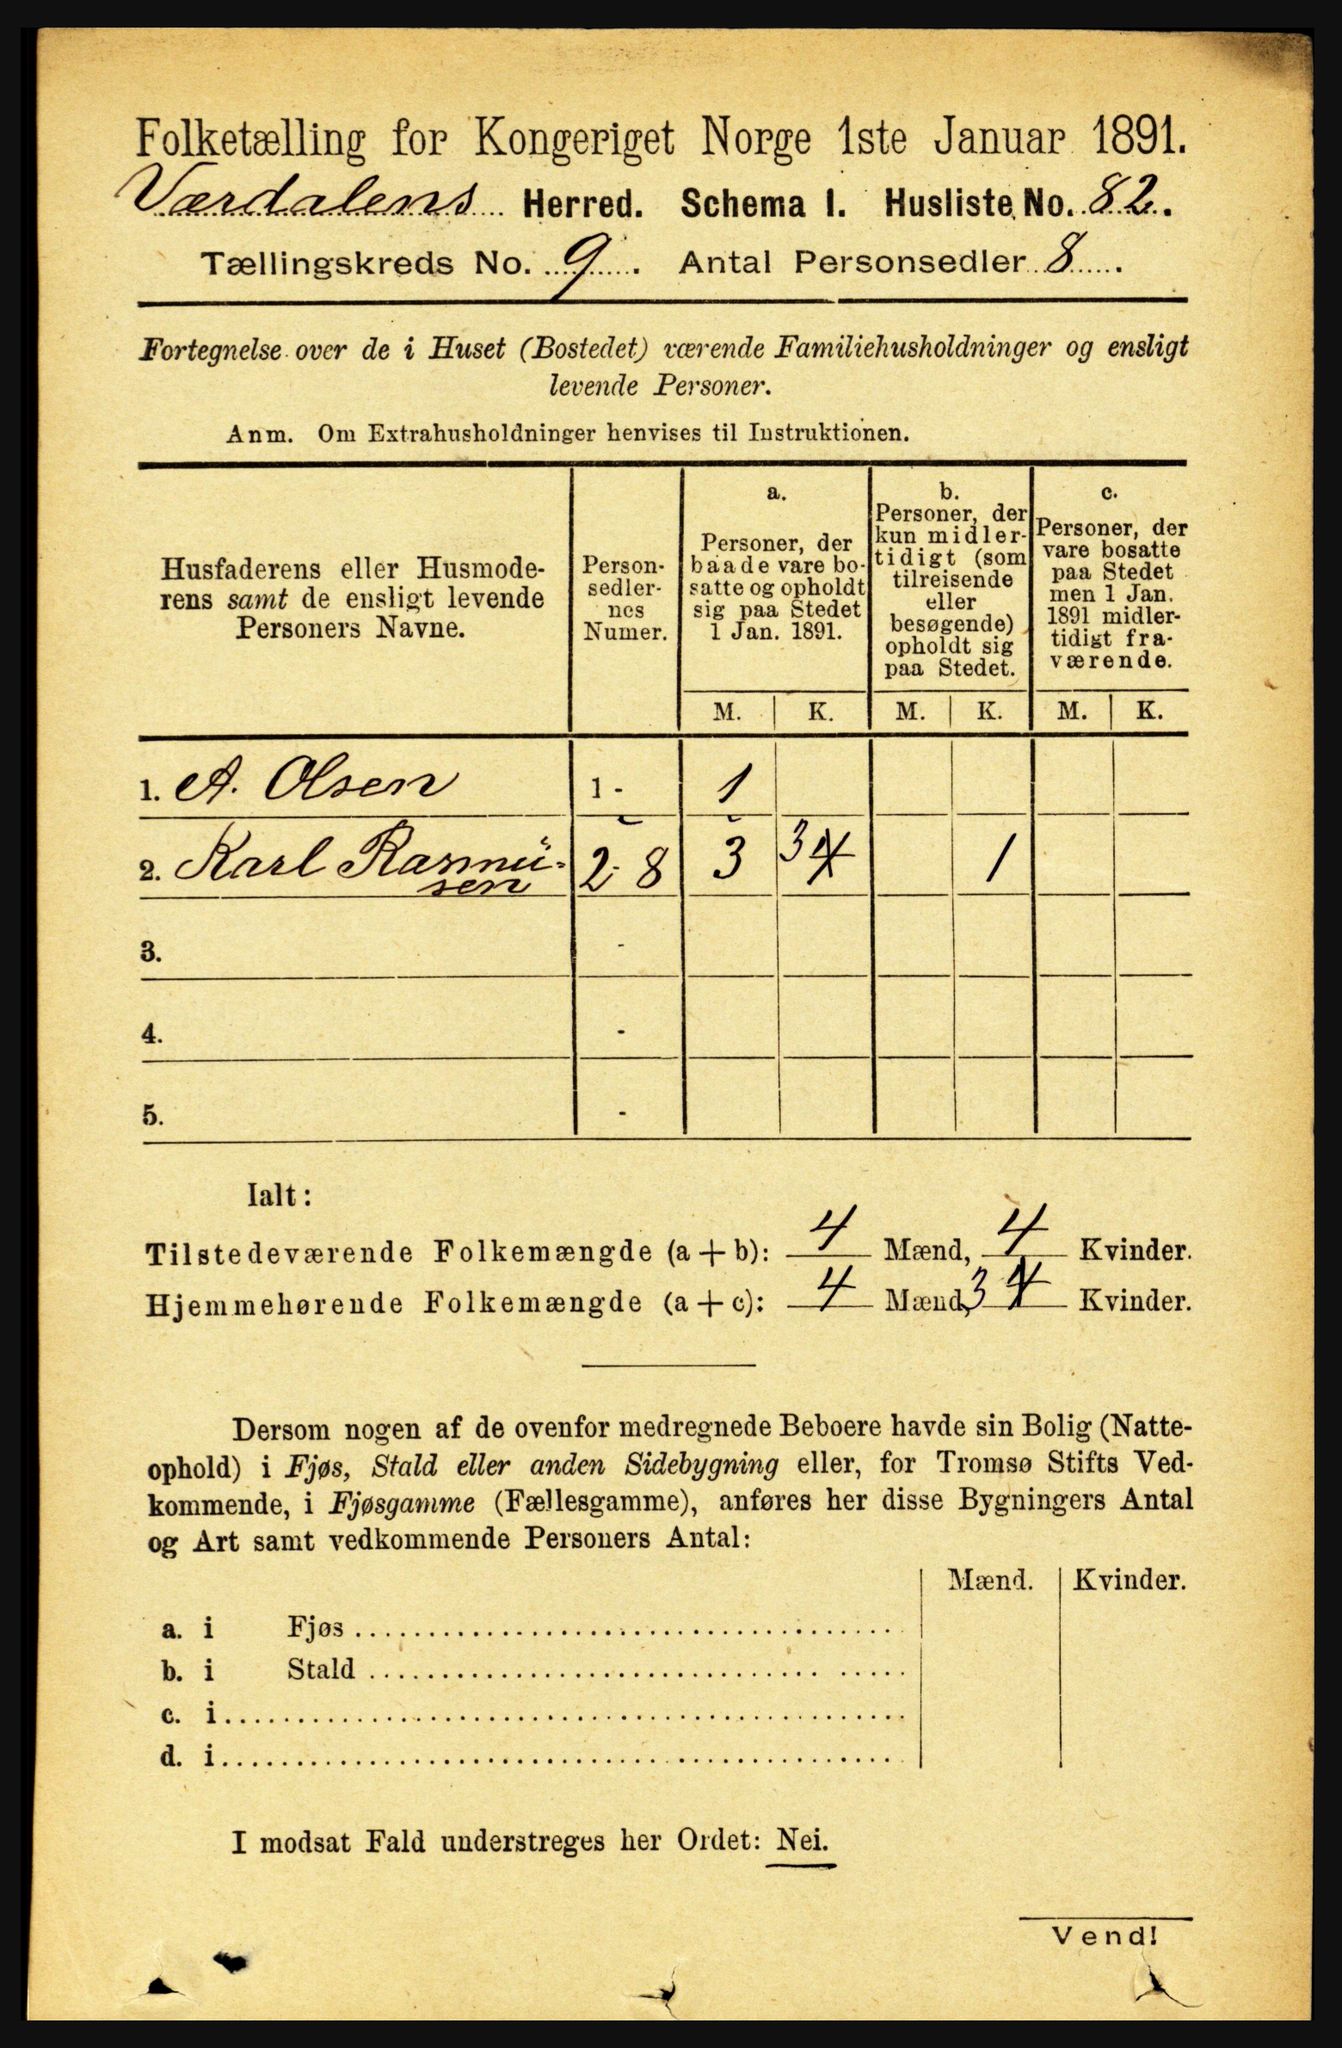 Folketælling for Kongeriget Norge 1ste Januar 1891.
Værdalens Herred. Schema I. Husliste No. 82.
Tællingskreds No. 9. Antal Personsedler 8.
Fortegnelse over de i Huset (Bostedet) værende Familiehusholdninger og ensligt
levende Personer.
Anm. Om Extrahusholdninger henvises til Instruktionen.
Husfaderens eller Husmode-
rens samt de ensligt levende
Personers Navne.
Person-
sedler-
nes
Numer.
a.
Personer, der
baade vare bo-
satte og opholdt
sig paa Stedet
1 Jan. 1891.
b.
Personer, der
kun midler-
tidigt (som
tilreisende
eller
besøgende)
opholdt sig
paa Stedet.
c.
Personer, der
vare bosatte
paa Stedet
men 1 Jan.
1891 midler-
tidigt fra-
værende.
M. K. M. K. M. K.
1. A. Olsen 1 - 1
2. Karl Rasmü-
sen 2 - 8 3 3 4 1
3. -
4. -
5. -
Ialt:
Tilstedeværende Folkemængde (a + b): 4 Mænd, 4 Kvinder.
Hjemmehørende Folkemængde (a + c): 4 Mænd, 3 4 Kvinder.
Dersom nogen af de ovenfor medregnede Beboere havde sin Bolig (Natte-
ophold) i Fjøs, Stald eller anden Sidebygning eller, for Tromsø Stifts Ved-
kommende, i Fjøsgamme (Fællesgamme), anføres her disse Bygningers Antal
og Art samt vedkommende Personers Antal:
Mænd. Kvinder.
a. i Fjøs
b. i Stald
c. i
d. i
I modsat Fald understreges her Ordet: Nei.
Vend!